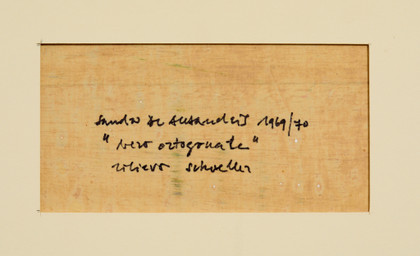 sandro de alexandris 1969/70
"nero ortogonale"
rilievo schoeller